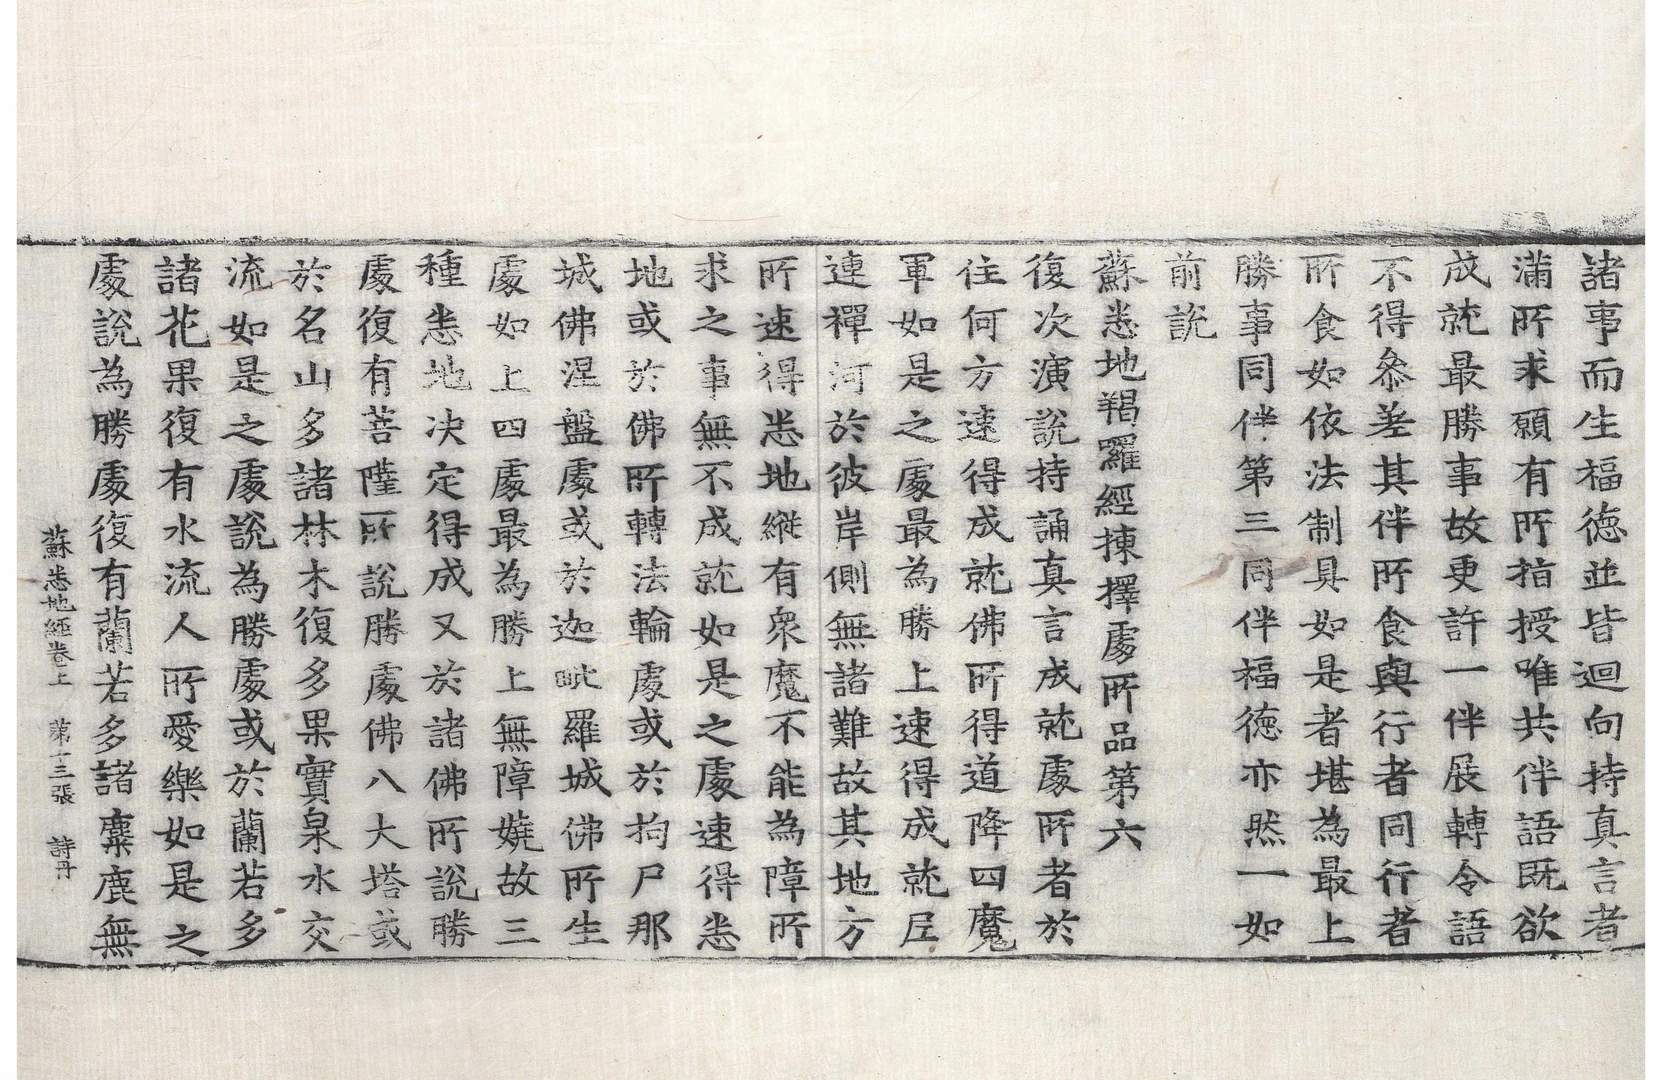 諸事而生福德並皆迴向持真言者
滿所求願有所指授唯共伴語既欲
成就最勝事故更許一伴展轉令語
不得叅差其伴所食與行者同行者
所食如依法制具如是者堪為最上
勝事同伴第三同伴福德亦然一如
前説
蘇悉地羯羅經揀擇處所品第六
復次演説持誦真言成就處所者於
住何方速得成就佛所得道降四魔
軍如是之處最為勝上速得成就尼
連禪河於彼岸側無諸難故其地方
所速得悉地縱有衆魔不能為障所
求之事無不成就如是之處速得悉
地或於佛所轉法輪處或於拘尸那
城佛涅盤處或於迦毗羅城佛所生
處如上四處最為勝上無障嬈故三
種悉地决定得成又於諸佛所説勝
處復有菩薩所説勝處佛八大塔或
於名山多諸林木復多果實泉水交
流如是之處説為勝處或於蘭若多
諸花果復有水流人所愛樂如是之
處説為勝處復有蘭若多諸麋鹿無
蘇悉地經卷上 第十三張 詩丹